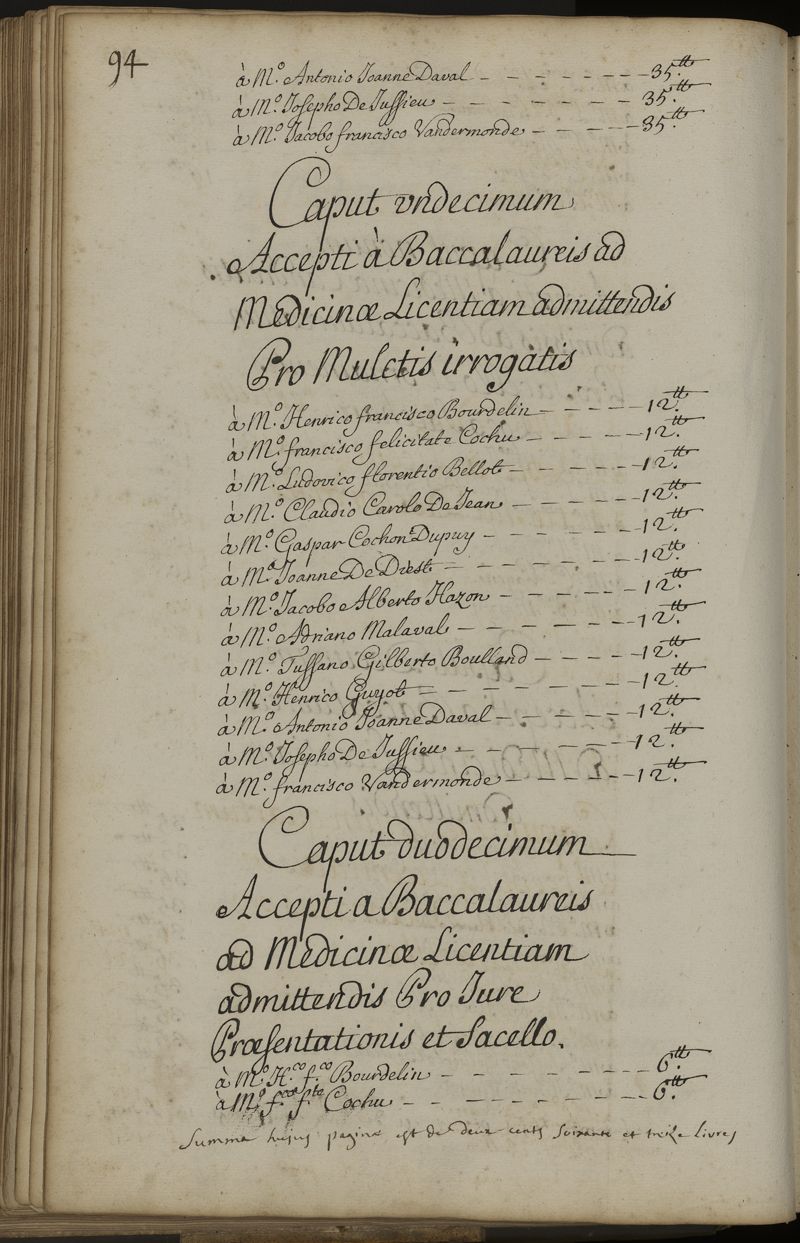 94
à M.º Antonio Joanne Daval - - - - - - - 35.tt
à M.º Josepho De Jussieu - - - - - - - 35.tt
à M.º Jacobo francisco Vandermonde - - - - - 35.tt
Caput vndecimum
Accepti à Baccalaureis ad
Medicinæ Licentiam admittendis
Pro Mulctis irrogatis
à M.º Henrico francisco Bourdelin - - - - - 12.tt
à M.º francisco felicitate Cochu - - - - - 12.tt
à M.º Ludovico florentio Bellot - - - - - 12.tt
à M.º Claudio Carolo De Jean - - - - - 12.tt
à M.º Gaspar Cochon Dupuy - - - - - - 12.tt
à M.º Joanne De Diest - - - - - - - 12.tt
à M.º Jacobo Alberto Hazon - - - - - - 12.tt
à M.º Adriano Malaval - - - - - - - 12.tt
à M.º Tussano Gilberto Boulland - - - - - 12.tt
à M.º Henrico Guyot - - - - - - - 12.tt
à M.º Antonio Joanne Daval - - - - - - 12.tt
à M.º Josepho De Jussieu - - - - - - - 12.tt
à M.º francisco Vandermonde - - - - - - 12.tt
Caput duodecimum
Accepti a Baccalaureis
ad Medicinæ Licentiam
admittendis Pro Jure
Præsentationis et Sacello.
à M.º H.co f.co Bourdelin - - - - - - - 6.tt
à M.º f.co f.te Cochu - - - - - - - - 6.tt
Summa hujus paginæ est de deux cents soixante et treize livres